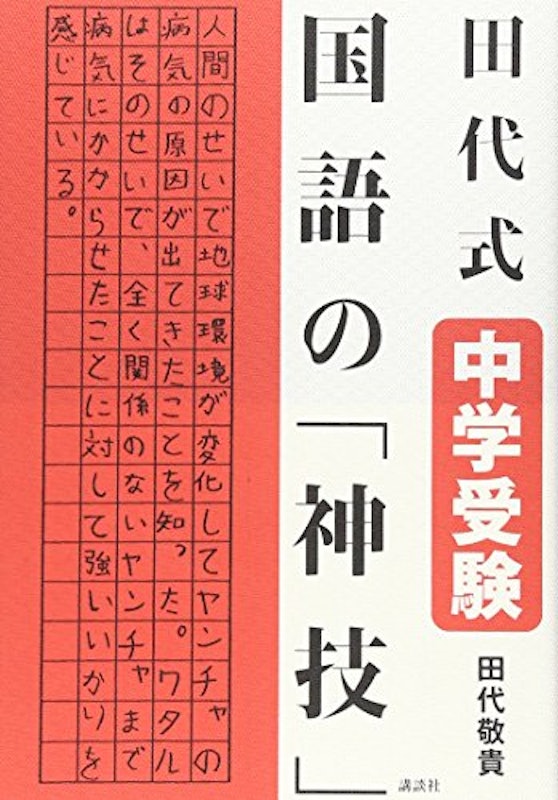 田代式
中学受験
国語の「神技」
田代敬貴
講談社
人間のせいで地球環境が変化してヤンチャの
病気の原因が出てきたことを知った。ワタル
はそのせいで、全く関係のないヤンチャまで
病気にかからせたことに対して強いいかりを
感じている。